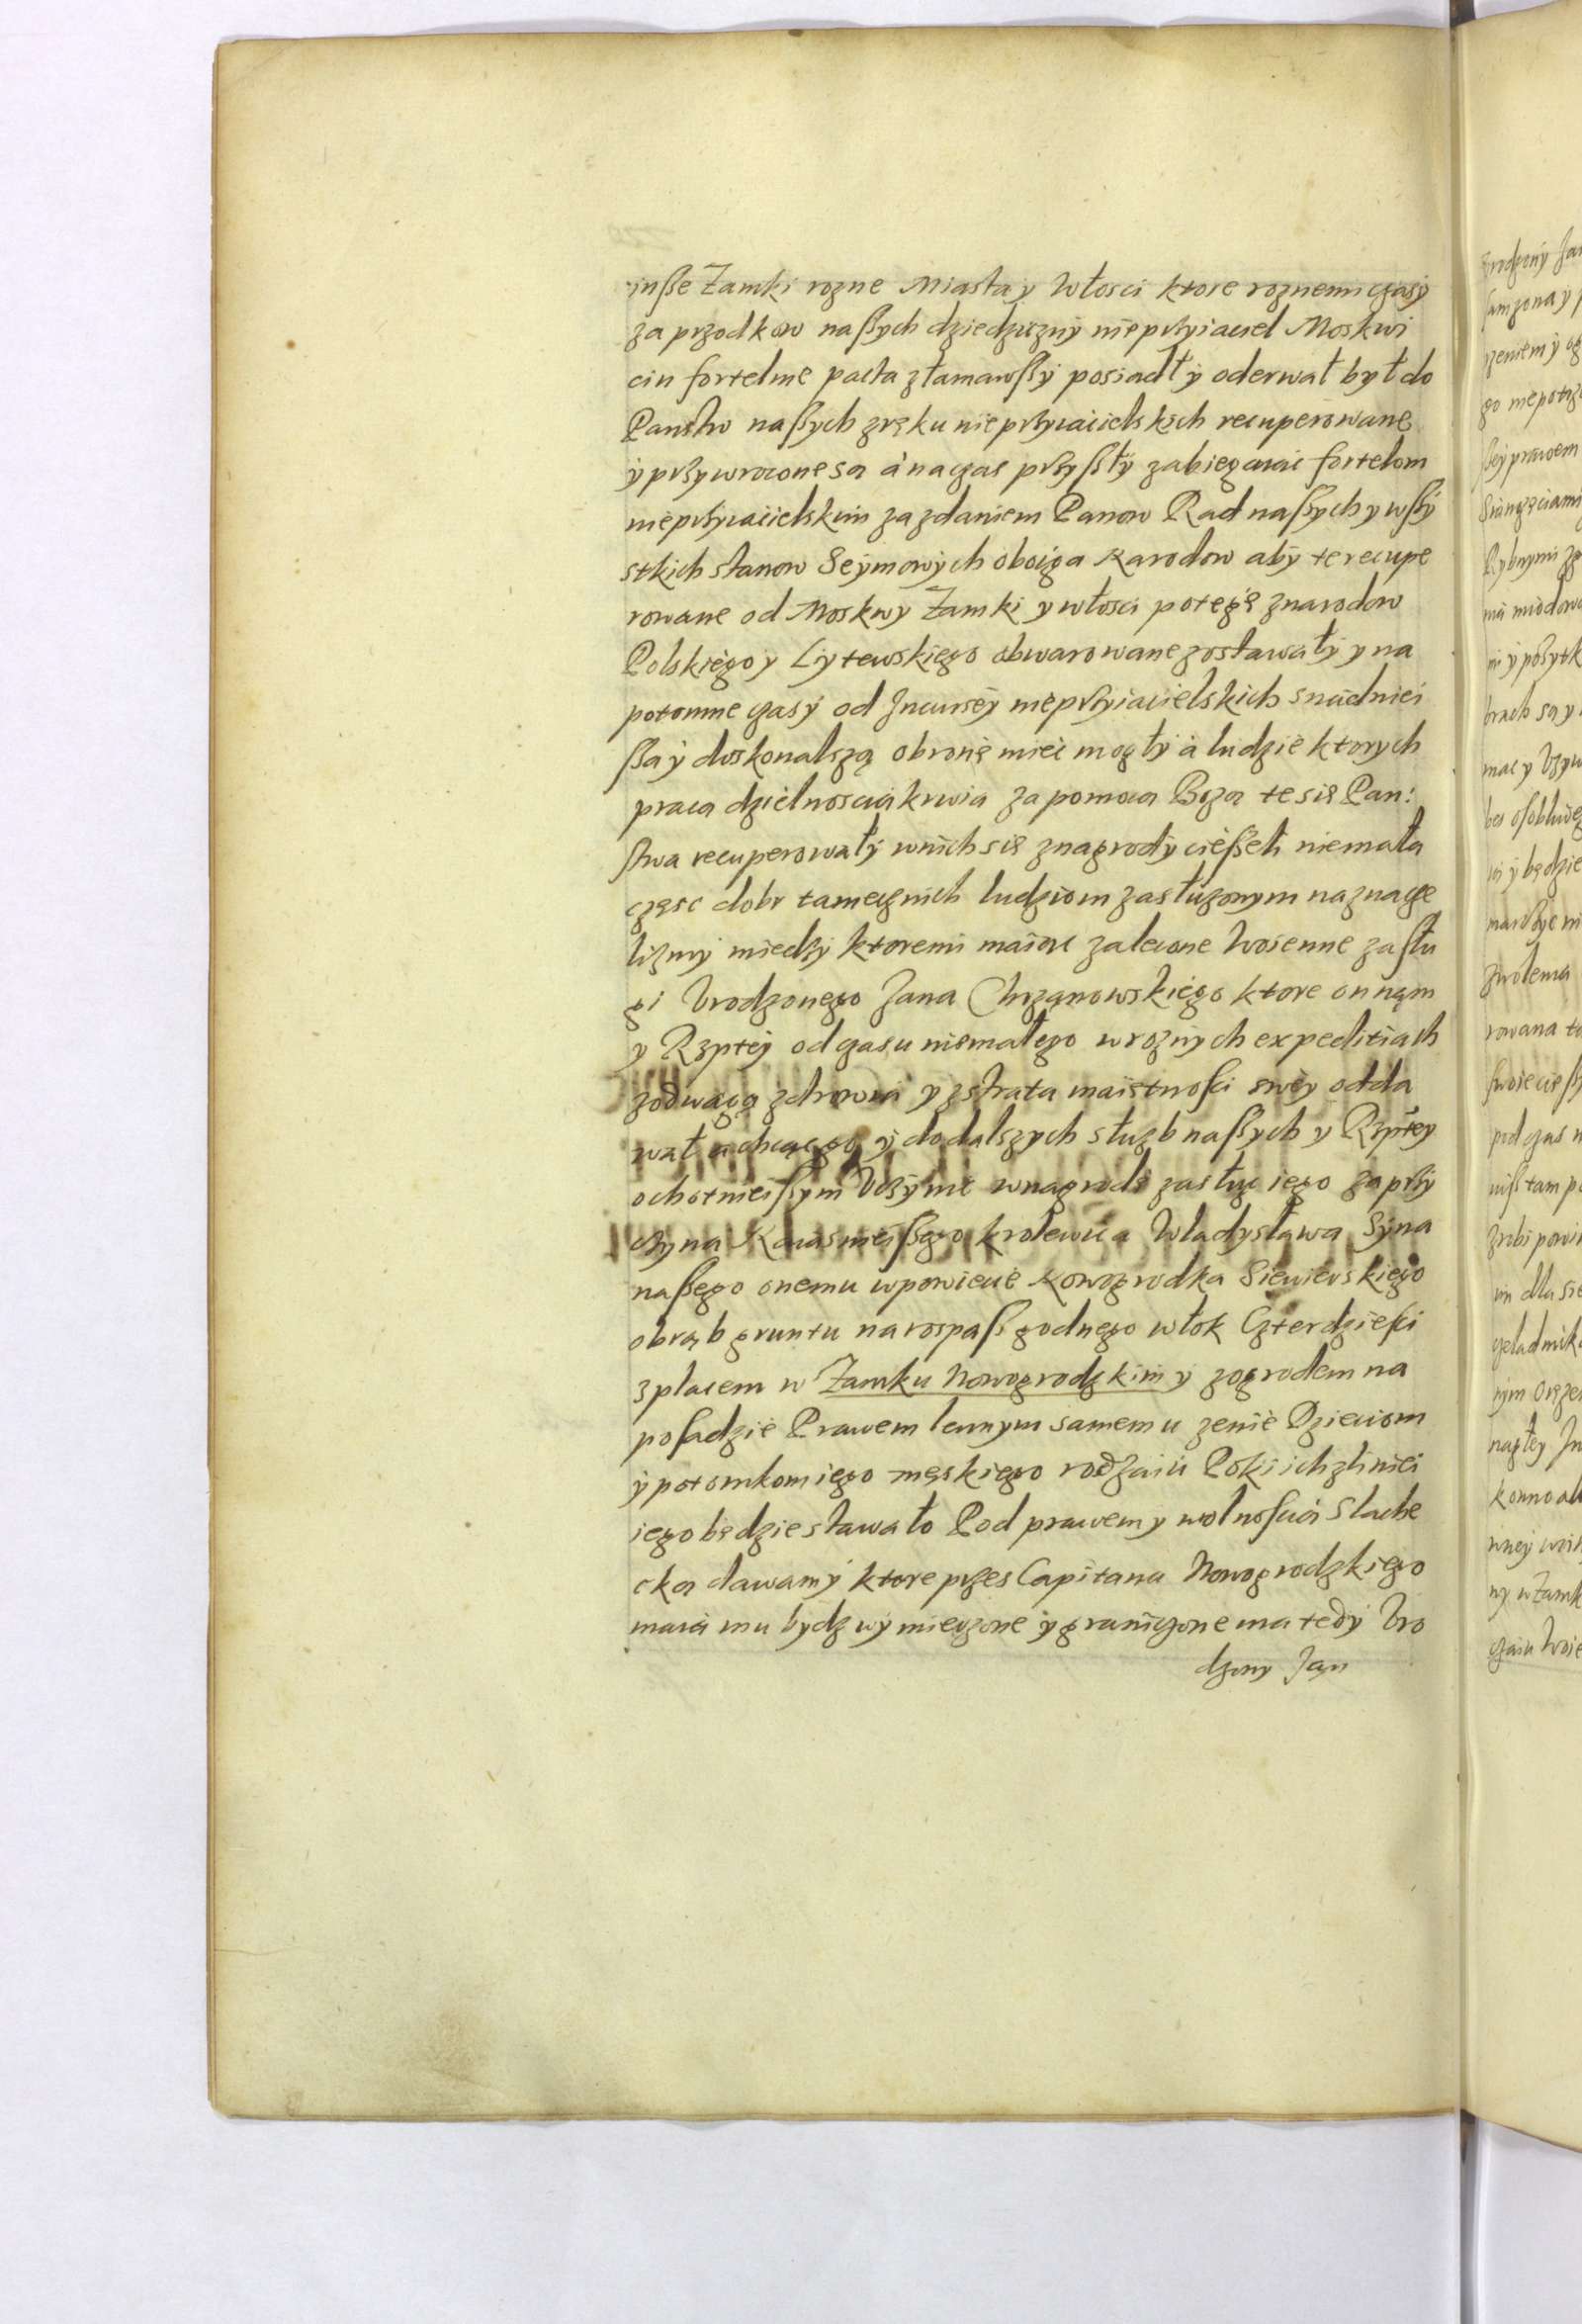 insße Zamki rozne Miasta y Włosci ktore roznemi czasÿ
za przodkow naßych dziedziczny nieprzyiaciel Moskwi
cin fortelme pacta złamawßÿ posiadł ÿ oderwał był do
Panstw naßych zręku nieprzyiacielskich recuperowane
ÿ przywrocone sa à na czas przyßłÿ zabiegaiac fortelom
nieprzyiacielskim za zdaniem Panow Rad naßych y wßÿ
stkich stanow Seÿmowÿch oboiga Narodow abÿ te recupe
rowane od Moskwy Zamki y włosci potegę znarodow
Polskiego y Lytewskiego obwarowane zostawałÿ y na
potomne czasÿ od Incurseÿ nieprzyiacielskich snadniei
ßa ÿ doskonalszą obronę mieć mogłÿ à ludzie ktorych
praca dzielnoscia krwia za pomoca Boza te się Pan:
stwa recuperowałÿ wnich się znagrodÿ cießeli niemała
częsc dobr tamecznich ludziom zasłuzonym naznacze
lizmy miedzÿ ktoremi maiac zalecone Woienne zasłu
gi Vrodzonego Jana Chrząnowskiego ktore on nąm
y Rzpteÿ od czasu niemałego w roznych expeditiach
zodwagą zdrowia y zstrata maiętnosci sweÿ odda
wał a chcąc go ÿ do dalszych słuzb naßych y Rzpteÿ
ochotnieißym Vczÿnic wnagrodę zasług iego za przÿ
czÿna Naiasnieißego krolewica Władysława Sÿna
naßego onemu wpowiecie Nowogrodka Siewierskiego
obrąb gruntu na rospaß godnego włok Czterdziesci
z placem w Zamku Nowogrodzkim ÿ zogrodem na
posadzie Prawem lennym samemu zenie Dzieciom
ÿ potomkom iego męskiego rodzaiu Poki ich zliniei
iego będzie stawało Pod prawem y wolnoscia Slache
cka dawamÿ ktore przes Capitana Nowogrodzkiego
maia mu bydz wÿmierzone ÿ graniczone ma tedÿ Vro
dzony Jąn